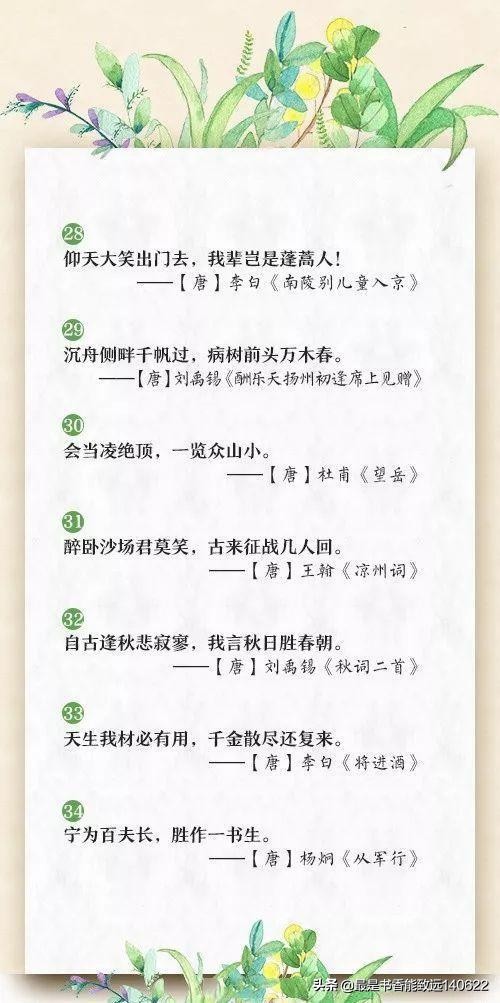 28
仰天大笑出门去，我辈岂是蓬蒿人！
——【唐】李白《南陵别儿童入京》
29
沉舟侧畔千帆过，病树前头万木春。
——【唐】刘禹锡《酬乐天扬州初逢席上见赠》
30
会当凌绝顶，一览众山小。
——【唐】杜甫《望岳》
31
醉卧沙场君莫笑，古来征战几人回。
——【唐】王翰《凉州词》
32
自古逢秋悲寂寥，我言秋日胜春朝。
——【唐】刘禹锡《秋词二首》
33
天生我材必有用，千金散尽还复来。
——【唐】李白《将进酒》
34
宁为百夫长，胜作一书生。
——【唐】杨炯《从军行》
头条@最是书香能致远140622